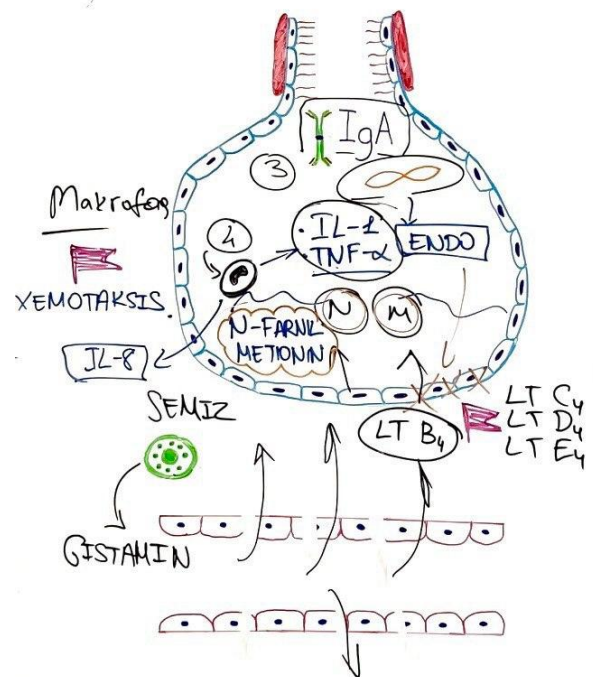 IgA
3
Makrofag
4
IL-1
TNF-α
ENDO
XEMOTAKSIS
N
M
N-FARNIL
METIONIN
IL-8
SEMIZ
LT B₄
LT C₄
LT D₄
LT E₄
GISTAMIN